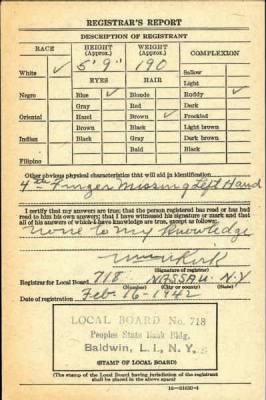 REGISTRAR'S REPORT
DESCRIPTION OF REGISTRANT
RACE
HEIGHT (Approx.)
WEIGHT (Approx.)
COMPLEXION
White ✓
5' 9"
190
Sallow
EYES
HAIR
Light
Negro
Blue ✓
Blonde
Ruddy ✓
Gray
Red
Dark
Oriental
Hazel
Brown ✓
Freckled
Brown
Black
Light brown
Indian
Black
Gray
Dark brown
Bald
Black
Filipino
Other obvious physical characteristics that will aid in identification
4th Finger Missing Left Hand
I certify that my answers are true; that the person registered has read or has had
read to him his own answers; that I have witnessed his signature or mark and that
all of his answers of which I have knowledge are true, except as follows:
None to my knowledge
Kirk
(Signature of registrar)
Registrar for Local Board 718 NASSAU N.Y
(Number) (City or county) (State)
Date of registration Feb 16-1942
LOCAL BOARD No. 718
Peoples State Bank Bldg.
Baldwin, L. I., N. Y.
(STAMP OF LOCAL BOARD)
(The stamp of the Local Board having jurisdiction of the registrant
shall be placed in the above space)